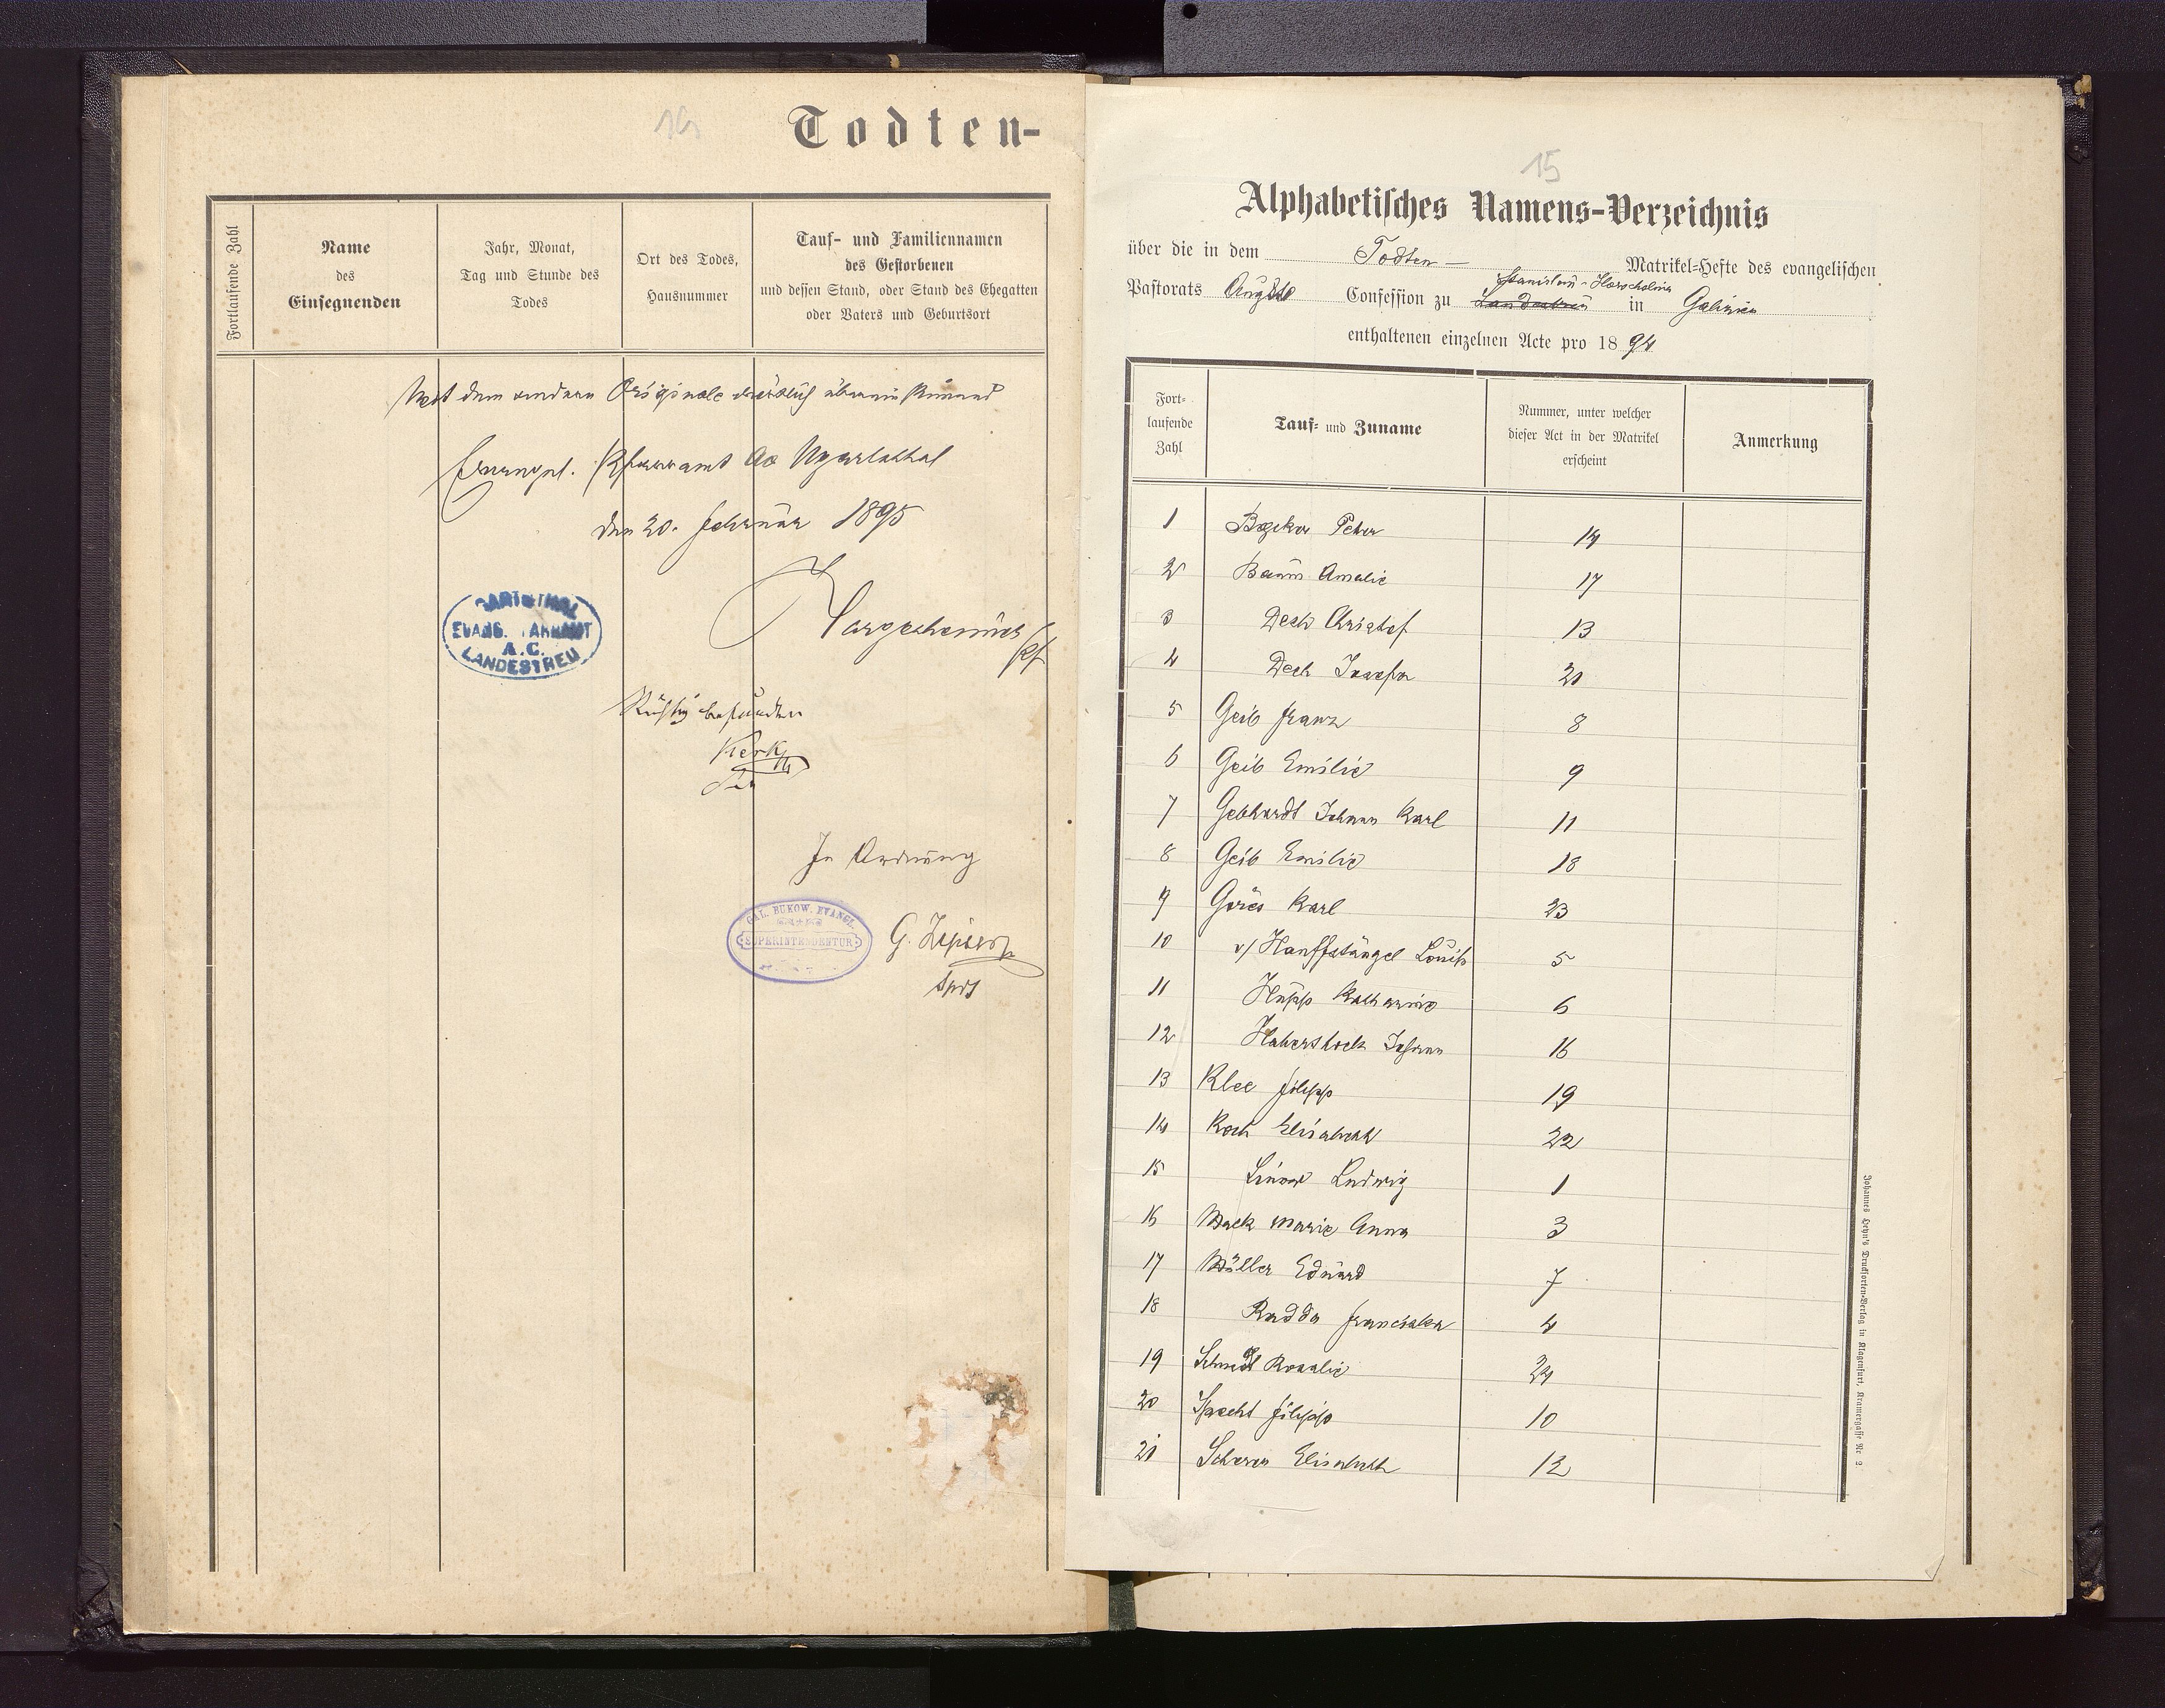 Todten-
Fortlaufende Zahl
Name
des
Einsegnenden
Jahr, Monat,
Tag und Stunde des
Todes
Ort des Todes,
Hausnummer
Tauf- und Familiennamen
des Gestorbenen
und dessen Stand, oder Stand des Ehegatten
oder Vaters und Geburtsort
Mit dem andern Originale
Evangel. Pfarramt Ugartsthal
den 20. Februar 1895
EVANG.
A.C.
LANDESTREU
Richtig befunden
In Ordnung
GAL. BUKOW. EVANGL.
SUPERINTENDENTUR
G.
15
Alphabetisches Namens-Verzeichnis
über die in dem Todten- Matrikel-Hefte des evangelischen
Pastorats Confession zu in Galizien
enthaltenen einzelnen Acte pro 1894
Fort-
laufende
Zahl
Tauf- und Zuname
Nummer, unter welcher
dieser Act in der Matrikel
erscheint
Anmerkung
1 Peter 14
2 Baum Amalie 17
3 Dech Christof 13
4 Dech Josefa 21
5 Geib Franz 8
6 Geib Emilie 9
7 Gebhardt Johann Karl 11
8 Geib Emilie 18
9 Göres Karl 23
10 v/ Hanffstängel 5
11 Hupp Katharina 6
12 Haberstock Johann 16
13 Klee Filipp 19
14 Koch Elisabeth 22
15 Ludwig 1
16 Mack Marie Anna 3
17 Müller Eduard 7
18 Radda Franciska 4
19 Rosalie 24
20 Specht Filipp 10
21 Scherer Elisabeth 12
Johannes Heyn's Drucksorten-Verlag in Klagenfurt, Kramergasse Nr. 2.